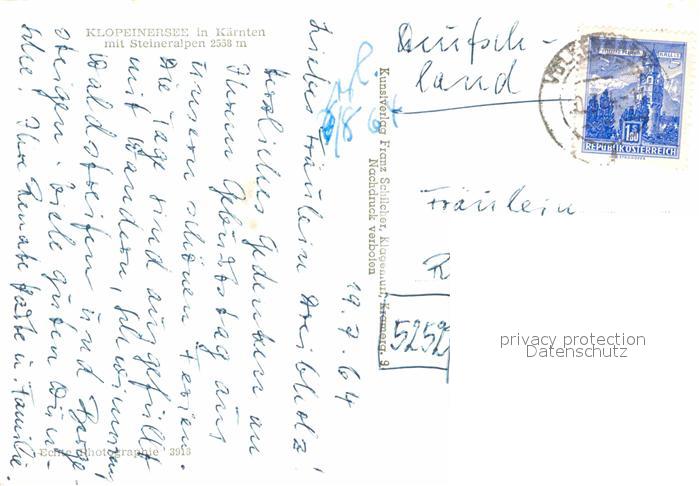 KLOPEINERSEE in Kärnten
mit Steineralpen 2558 m
19.7.64
Liebes Fräulein
herzliches Gedenken an
Ihrem Geburtstag aus
unsern schönen Ferien.
Die Tage sind ausgefüllt
mit Wandern, Schwimmen,
Waldstreifen und Berge-
steigen. Viele guten Wün-
sche! Ihre Renate u. Familie.
Echte Photographie 3913
Kunstverlag Franz Schilcher, Klagenfurt, Kramerg. 9
Nachdruck verboten
Deutsch-
land
Fräulein
R
5252
REPUBLIK ÖSTERREICH
1.50
privacy protection
Datenschutz